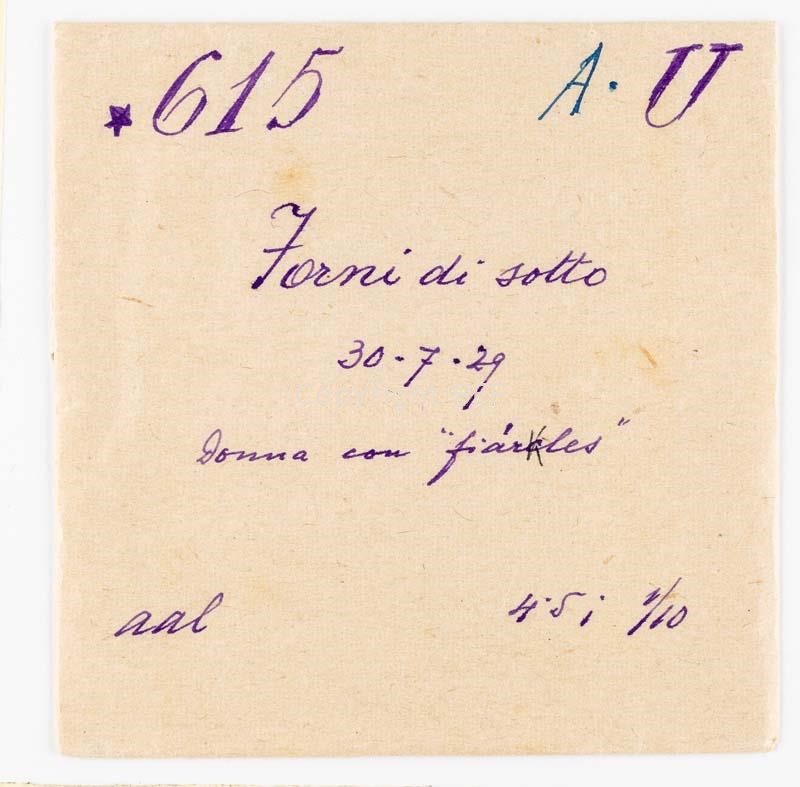 *615 A. U
Forni di sotto
30-7-29
Donna con "fiárkles"
aal 4.5 i 1/10